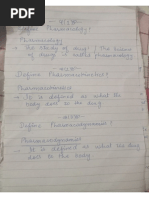 Define Pharmacology?
Pharmacology
→ The study of drug / The Science
of drugs is called pharmacology
Define Pharmacokinetics?
Pharmacokinetics
→ It is defined as what the
body does to the drug.
Define Pharmacodynamics?
Pharmacodynamics
→ It is defined as what the drug
does to the body.